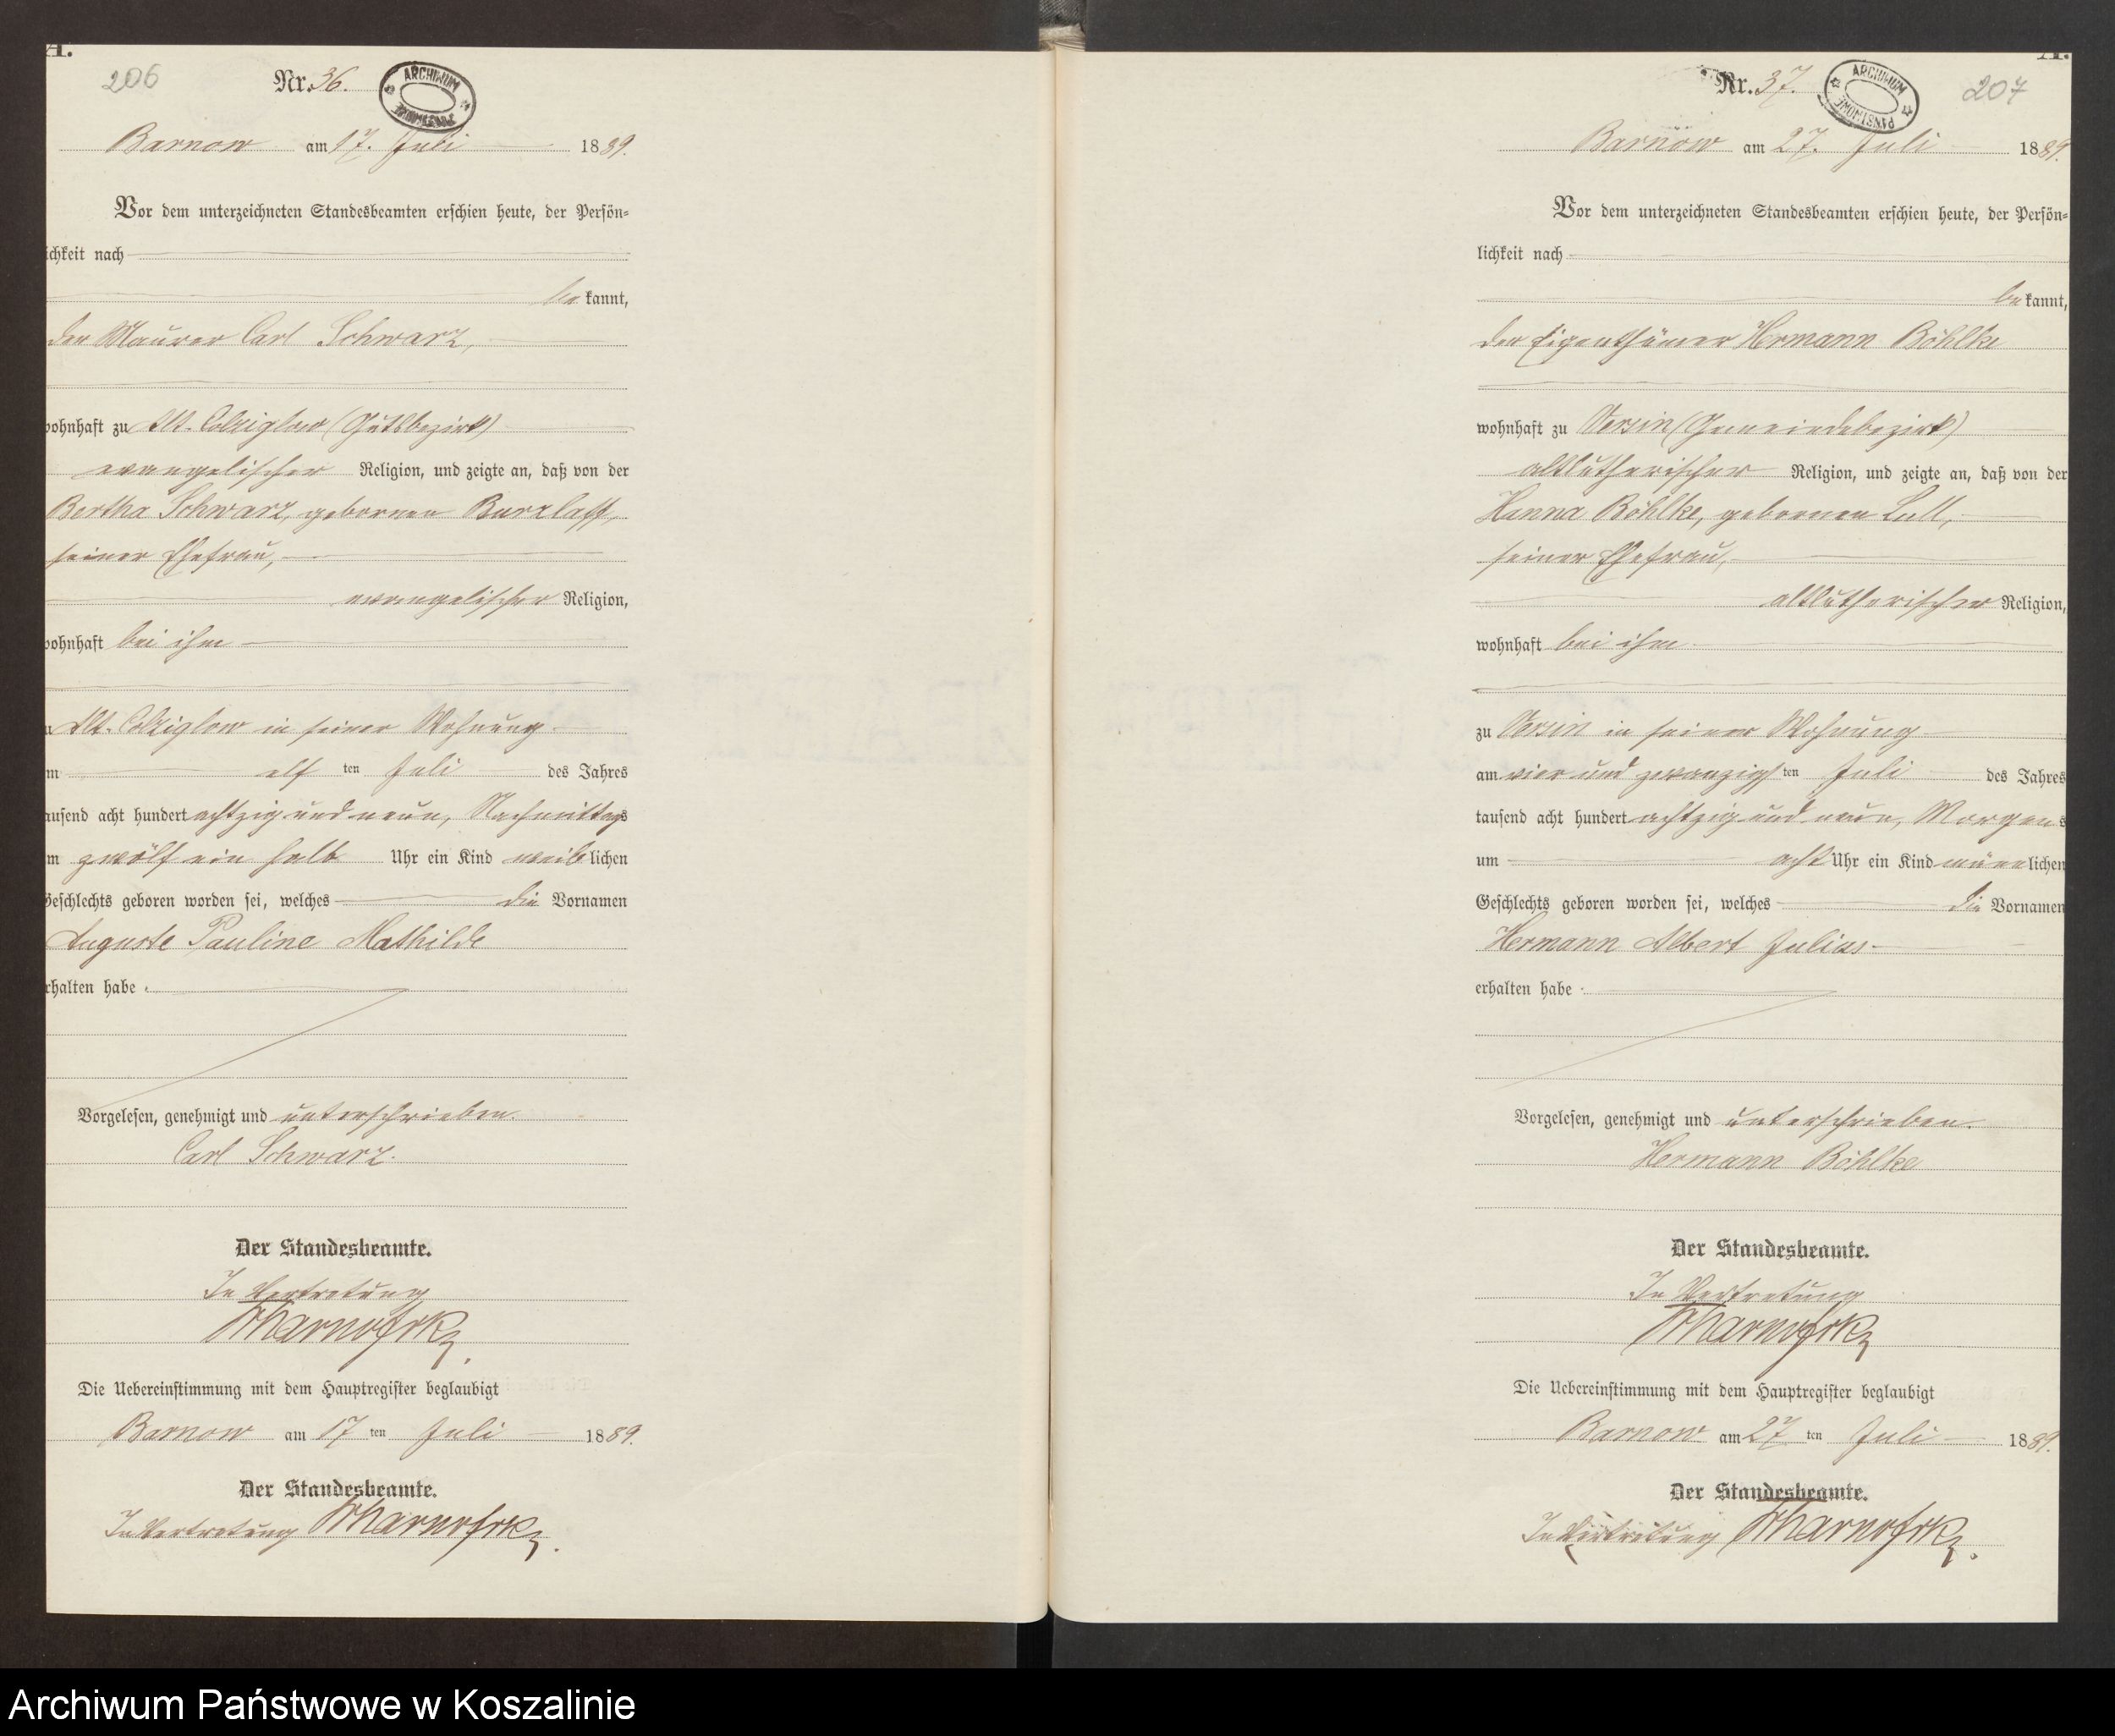 A.
206
Nr. 36.
ARCHIWUM PAŃSTWOWE
Barnow am 17. Juli 1889.
Vor dem unterzeichneten Standesbeamten erschien heute, der Persön-
ichkeit nach
be kannt,
der Maurer Carl Schwarz,
wohnhaft zu Alt. Colziglow (Gutsbezirk)
evangelischer Religion, und zeigte an, daß von der
Bertha Schwarz, geborenen Burzlaff,
seiner Ehefrau,
evangelischer Religion,
wohnhaft bei ihm
u Alt. Colziglow in seiner Wohnung
m elf ten Juli des Jahres
ausend acht hundert achtzig und neun, Nachmittags
m zwölf ein halb Uhr ein Kind weib lichen
Geschlechts geboren worden sei, welches die Vornamen
Auguste Pauline Mathilde
rhalten habe.
Vorgelesen, genehmigt und unterschrieben.
Carl Schwarz.
Der Standesbeamte.
In Vertretung
Die Uebereinstimmung mit dem Hauptregister beglaubigt
Barnow am 17 ten Juli 1889.
Der Standesbeamte.
In Vertretung
A.
Nr. 37.
ARCHIWUM PAŃSTWOWE
207
Barnow am 27. Juli 1889.
Vor dem unterzeichneten Standesbeamten erschien heute, der Persön-
lichkeit nach
be kannt,
der Eigenthümer Hermann Böhlke
wohnhaft zu Versin (Gemeindebezirk)
altlutherischer Religion, und zeigte an, daß von der
Hanna Böhlke, geborenen Lull,
seiner Ehefrau,
altlutherischer Religion,
wohnhaft bei ihm
zu Versin in seiner Wohnung
am vier und zwanzigs ten Juli des Jahres
tausend acht hundert achtzig und neun, Morgens
um acht Uhr ein Kind männ lichen
Geschlechts geboren worden sei, welches die Vornamen
Hermann Albert Julius
erhalten habe.
Vorgelesen, genehmigt und unterschrieben.
Hermann Böhlke
Der Standesbeamte.
In Vertretung
Die Uebereinstimmung mit dem Hauptregister beglaubigt
Barnow am 27 ten Juli 1889.
Der Standesbeamte.
In Vertretung
Archiwum Państwowe w Koszalinie